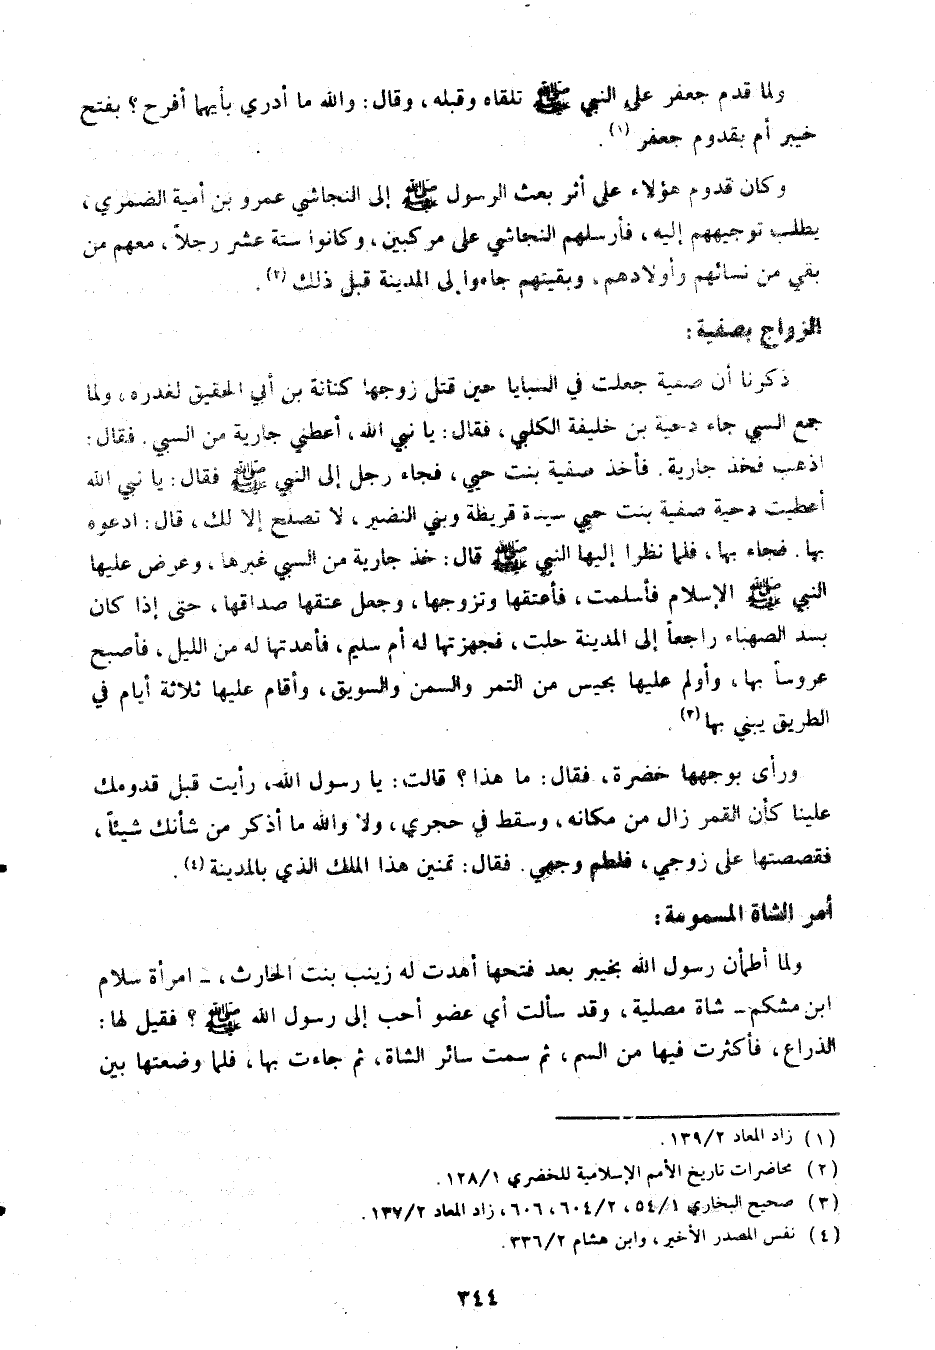 ولما قدم جعفر على النبي ﷺ تلقاه وقبله، وقال: والله ما أدري بأيهما أفرح؟ بفتح
خيبر أم بقدوم جعفر (١).
وكان قدوم هؤلاء على أثر بعث الرسول ﷺ إلى النجاشي عمرو بن أمية الضمري،
يطلب توجيههم إليه، فأرسلهم النجاشي على مركبين، وكانوا ستة عشر رجلاً، معهم من
بقي من نسائهم وأولادهم، وبقيتهم جاءوا إلى المدينة قبل ذلك (٢).
الزواج بصفية:
ذكرنا أن صفية جعلت في السبايا حين قتل زوجها كنانة بن أبي الحقيق لغدره، ولما
جمع السبي جاء دحية بن خليفة الكلبي، فقال: يا نبي الله، أعطني جارية من السبي. فقال:
اذهب فخذ جارية. فأخذ صفية بنت حيي، فجاء رجل إلى النبي ﷺ فقال: يا نبي الله
أعطيت دحية صفية بنت حيي سيدة قريظة وبني النضير، لا تصلح إلا لك، قال: ادعوه
بها. فجاء بها، فلما نظرا إليها النبي ﷺ قال: خذ جارية من السبي غيرها، وعرض عليها
النبي ﷺ الإسلام فأسلمت، فأعتقها وتزوجها، وجعل عتقها صداقها، حتى إذا كان
بسد الصهباء راجعاً إلى المدينة حلت، فجهزتها له أم سليم، فأهدتها له من الليل، فأصبح
عروساً بها، وأولم عليها بحيس من التمر والسمن والسويق، وأقام عليها ثلاثة أيام في
الطريق يبني بها (٣).
ورأى بوجهها خضرة، فقال: ما هذا؟ قالت: يا رسول الله، رأيت قبل قدومك
علينا كأن القمر زال من مكانه، وسقط في حجري، ولا والله ما أذكر من شأنك شيئاً،
فقصصتها على زوجي، فلطم وجهي. فقال: تمنين هذا الملك الذي بالمدينة (٤).
أمر الشاة المسمومة:
ولما أطمأن رسول الله بخيبر بعد فتحها أهدت له زينب بنت الحارث، ـ امرأة سلام
ابن مشكم ـ شاة مصلية، وقد سألت أي عضو أحب إلى رسول الله ﷺ؟ فقيل لها:
الذراع، فأكثرت فيها من السم، ثم سمت سائر الشاة، ثم جاءت بها، فلما وضعتها بين
(١) زاد المعاد ١٣٩/٢.
(٢) محاضرات تاريخ الأمم الإسلامية للخضري ١٢٨/١.
(٣) صحيح البخاري ٥٤/١، ٦٠٤/٢، ٦٠٦، زاد المعاد ١٣٧/٢.
(٤) نفس المصدر الأخير، وابن هشام ٣٣٦/٢.
٣٤٤